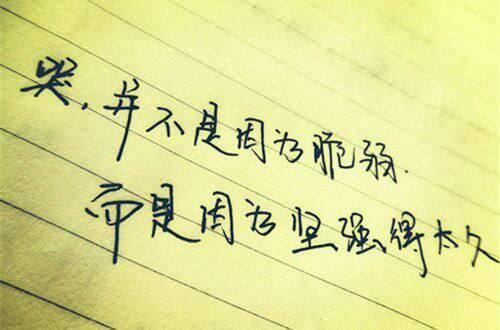 哭,并不是因为脆弱.
而是因为坚强得太久